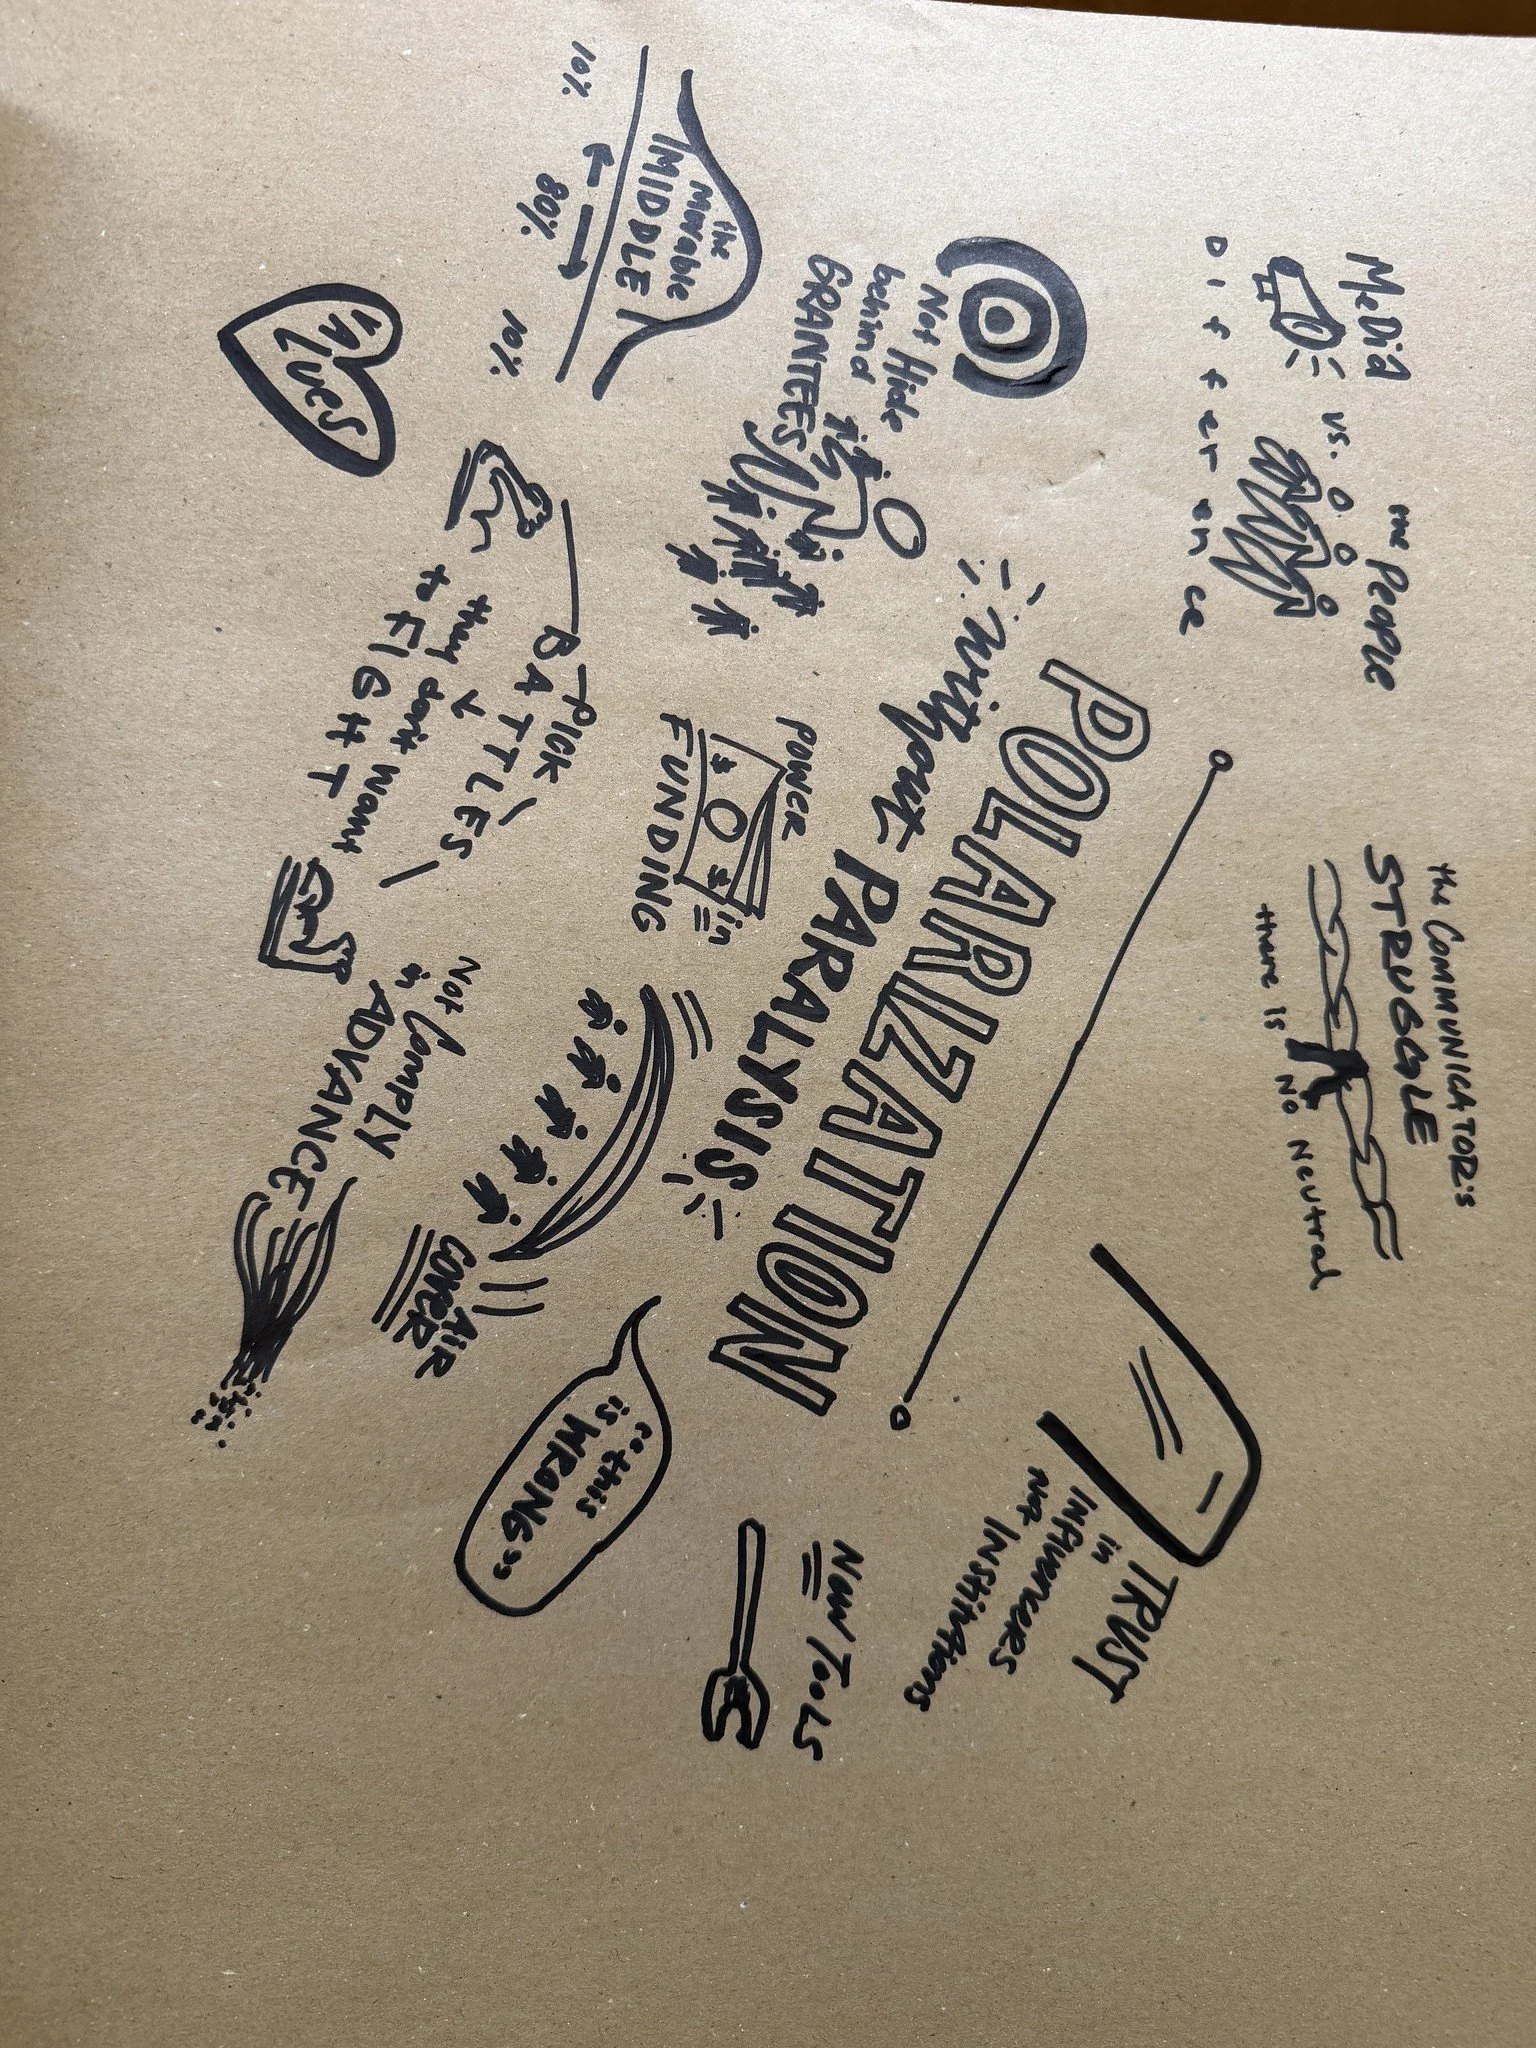 MeDia vs. the People
Difference
the COMMUNICATOR's
STRUGGLE
there is No Neutral
TRUST
in
INFluencers
not INStitutions
POLARIZATION
without PARALYSIS
Not Hide
behind
GRANTEES
the
Movable
MIDDLE
10%
80%
10%
VALUES
POWER
in
FUNDING
$ $
PICK
BATTLES
they don't want
to FIGHT
Not Comply
in
ADVANCE
AIR
COVER
"this
is WRONG"
New TOOLS